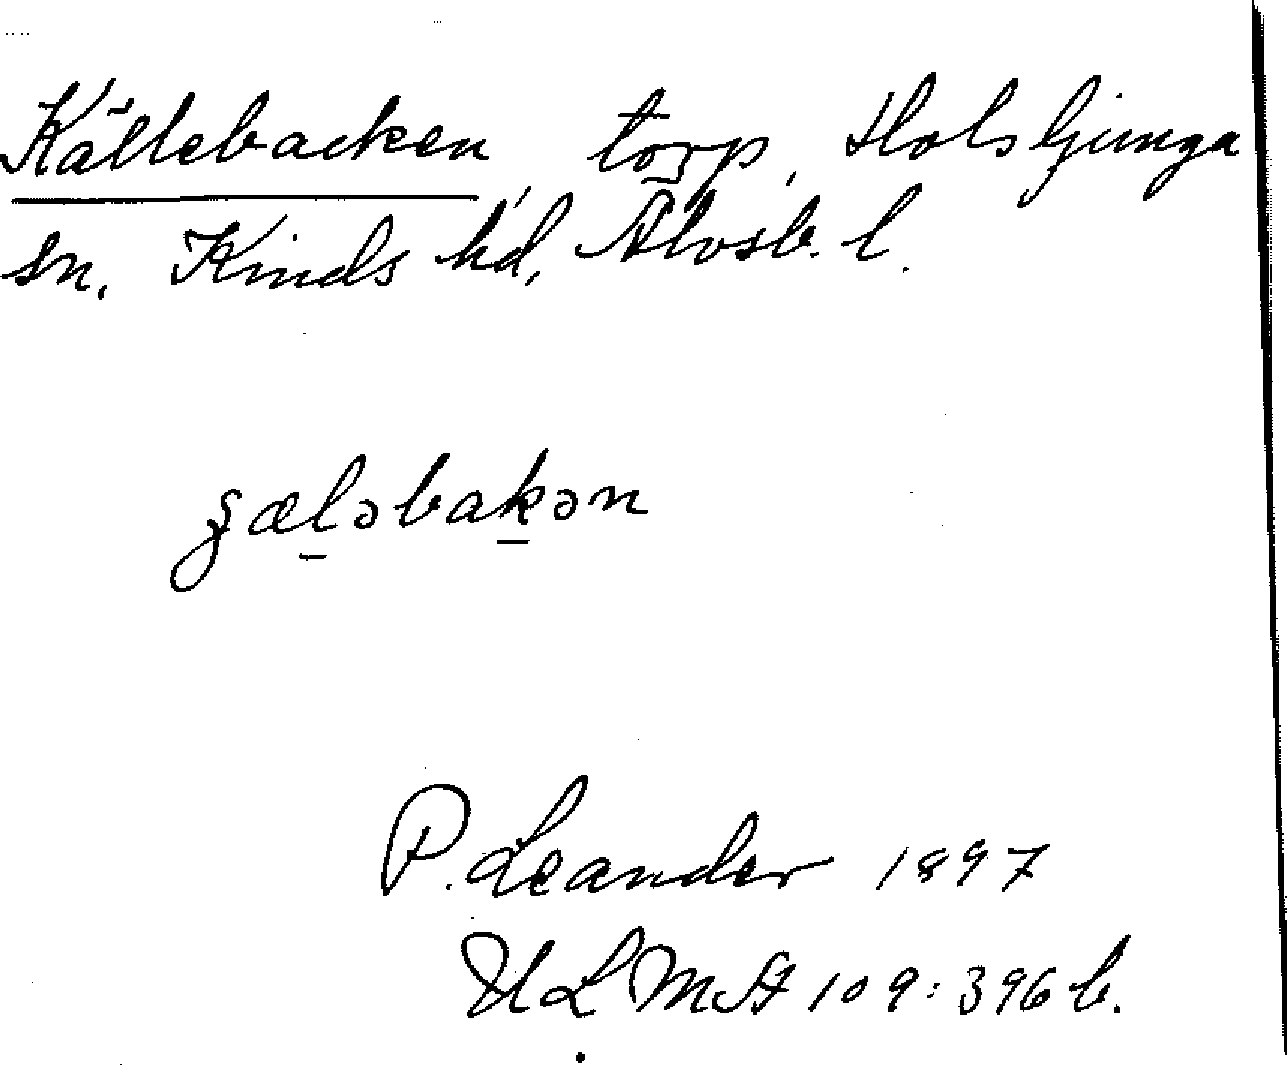 Källebacken, torp, Holsljunga
sn. Kinds hd, Älvsb. l.
ʂæləbakən
P. Leander 1897
ULMA 109:396 b.